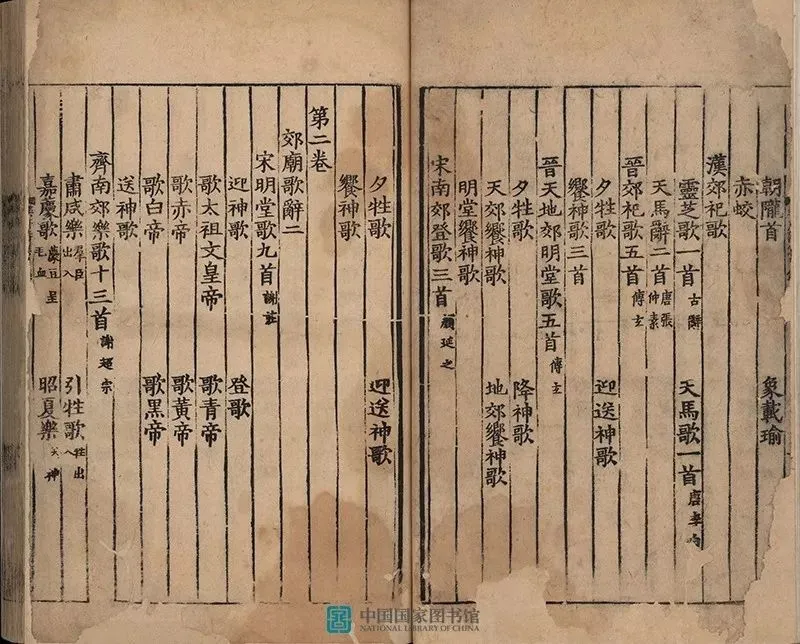 朝隴首 象載瑜
赤蛟
漢郊祀歌
靈芝歌一首 古辭 天馬歌一首 唐李
天馬辭二首 唐張仲素
晉郊祀歌五首 傅玄
夕牲歌 迎送神歌
饗神歌三首
晉天地郊明堂歌五首 傅玄
夕牲歌 降神歌
天郊饗神歌 地郊饗神歌
明堂饗神歌
宋南郊登歌三首 顏延之
夕牲歌 迎送神歌
饗神歌
第二卷
郊廟歌辭二
宋明堂歌九首 謝莊
迎神歌 登歌
歌太祖文皇帝 歌青帝
歌赤帝 歌黃帝
歌白帝 歌黑帝
送神歌
齊南郊樂歌十三首 謝超宗
肅咸樂 羣臣出入 引牲歌 牲出入
嘉慶歌 薦豆呈毛血 昭夏樂 神
中国国家图书馆
NATIONAL LIBRARY OF CHINA